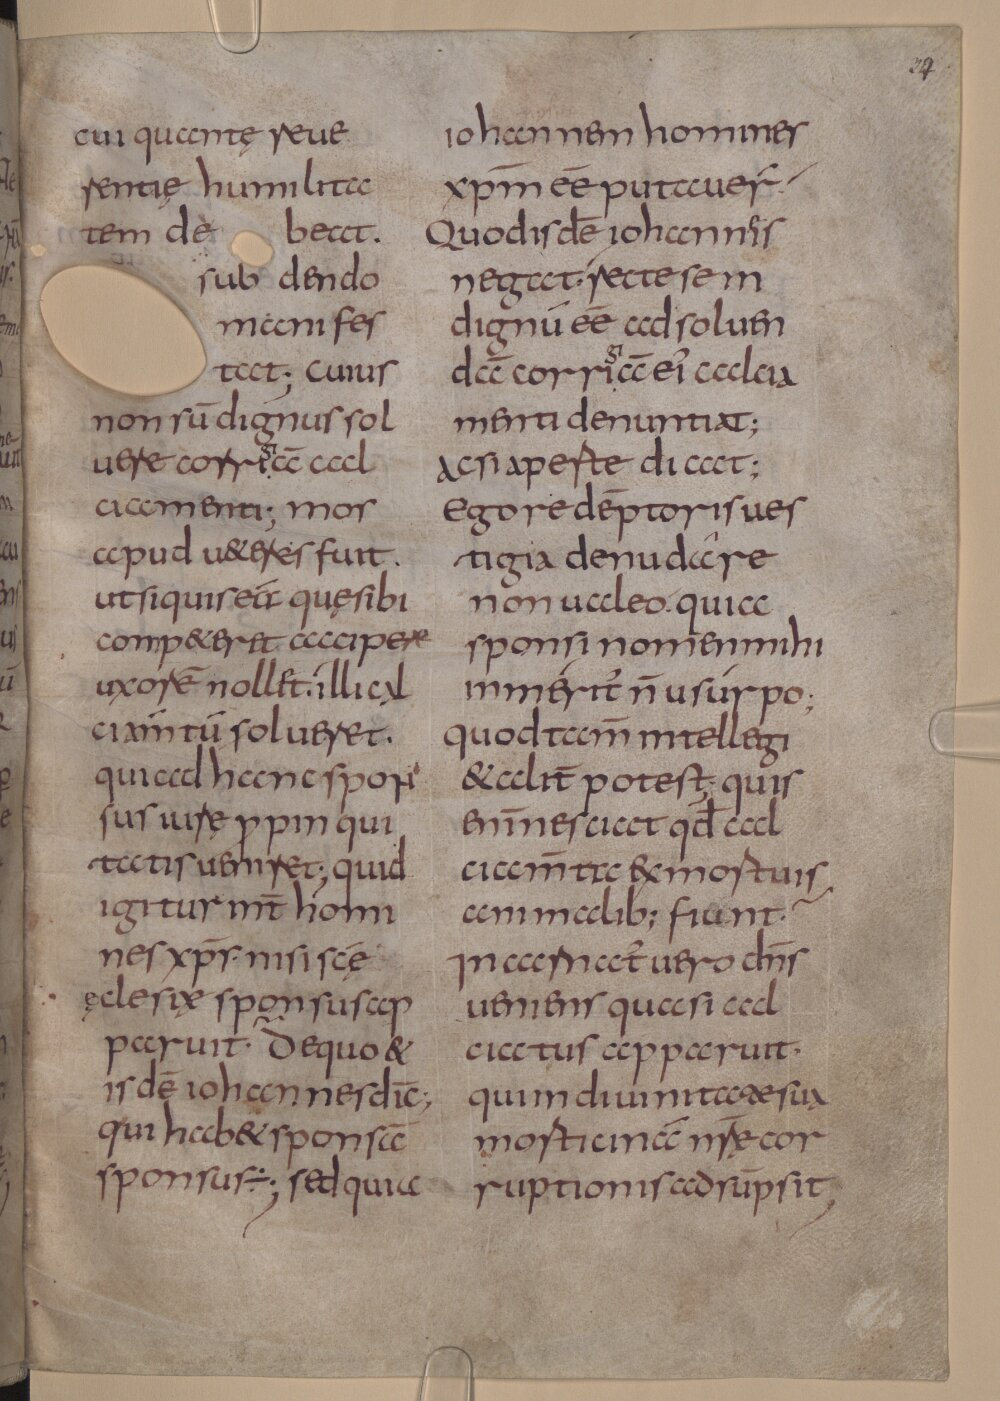 34
cui quantę reue
rentię humilita
tem dè beat.
sub dendo
manifes
tat; cuius
non sū dignus sol
uere corrigiā cal
ciamenti; mos
apud u&eres fuit.
utsiquis eā quęsibi
comp&eret accipere
uxorē nollet. illi cal
ciam̄tū solueret.
qui ad hanc spon
sus iure ꝓpin qui
tatis ueniret; quid
igitur int̄ homi
nes xp̄s. nisi scę̄
ęclesiæ sponsus ap
paruit. De quo &
is dē iohannes dic̄;
qui hab& sponsā
sponsus÷; sed quia
iohannem homines
xp̄m eē putauer̄.
Quod isdē iohannis
negat. recte se in
dignū eē ad soluen
dā corrigiā ei᾽ calcia
menti denuntiat;
acsi aperte dicat;
Ego redēptoris ues
tigia denudare
non ualeo. quia
sponsi nomen mihi
inmerit᾽ n̄ usurpo;
quod tam̄ intellegi
& alit̄ potest; quis
enim̄ nesciat qđ cal
ciam̄ta ex mortuis
animalib; fiunt.
Incarnat᾽ uero dn̄s
ueniens quasi cal
ciatus apparuit.
qui in diuinitate sua
morticinā nr̄e cor
ruptionis adsūpsit,